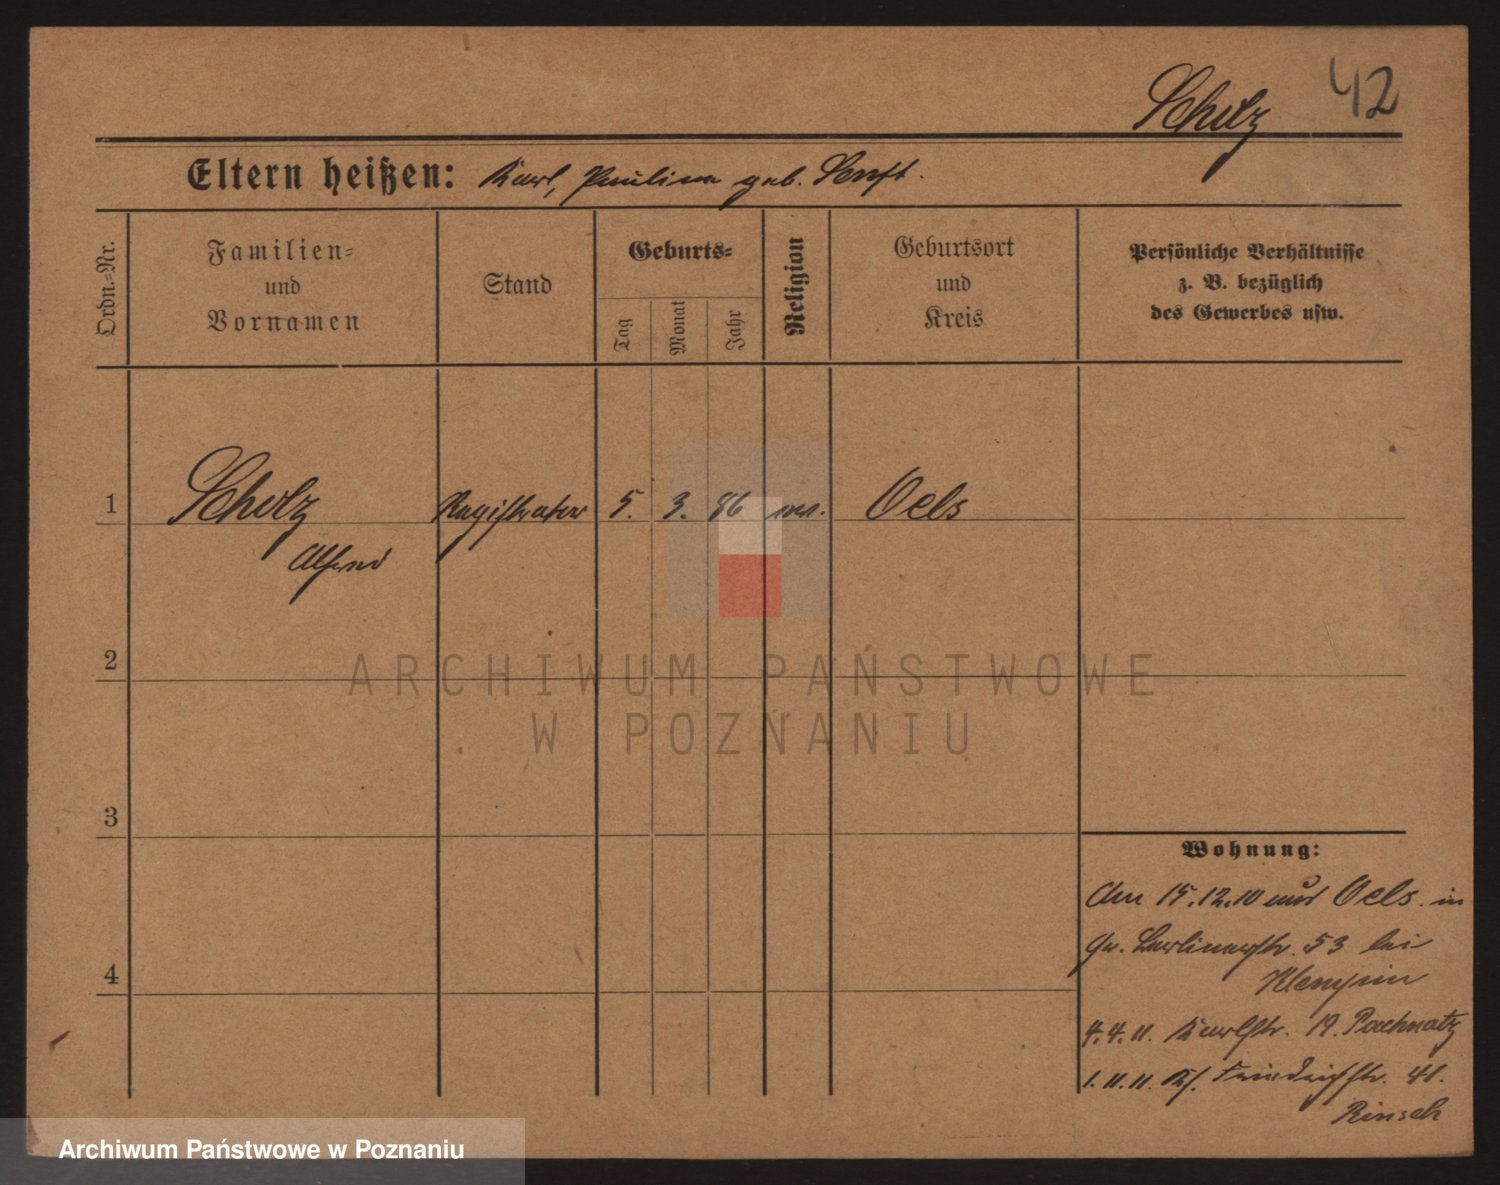 Scholz 42
Eltern heißen: Karl, Pauline geb. Senft.
Ordn.=Nr.
Familien=
und
Vornamen
Stand
Geburts=
Tag
Monat
Jahr
Religion
Geburtsort
und
Kreis
Persönliche Verhältnisse
z. B. bezüglich
des Gewerbes usw.
1 Scholz Registrator 5. 3. 86 ev. Oels
Alfred
2
3
4
Wohnung:
Am 15.12.10 aus Oels in
Gr. Berlinerstr. 53 bei
4.4.11. Karlstr. 19. Pachnatz
1.11.11. Kl. Friedrichstr. 41.
Rinsch
ARCHIWUM PAŃSTWOWE
W POZNANIU
Archiwum Państwowe w Poznaniu